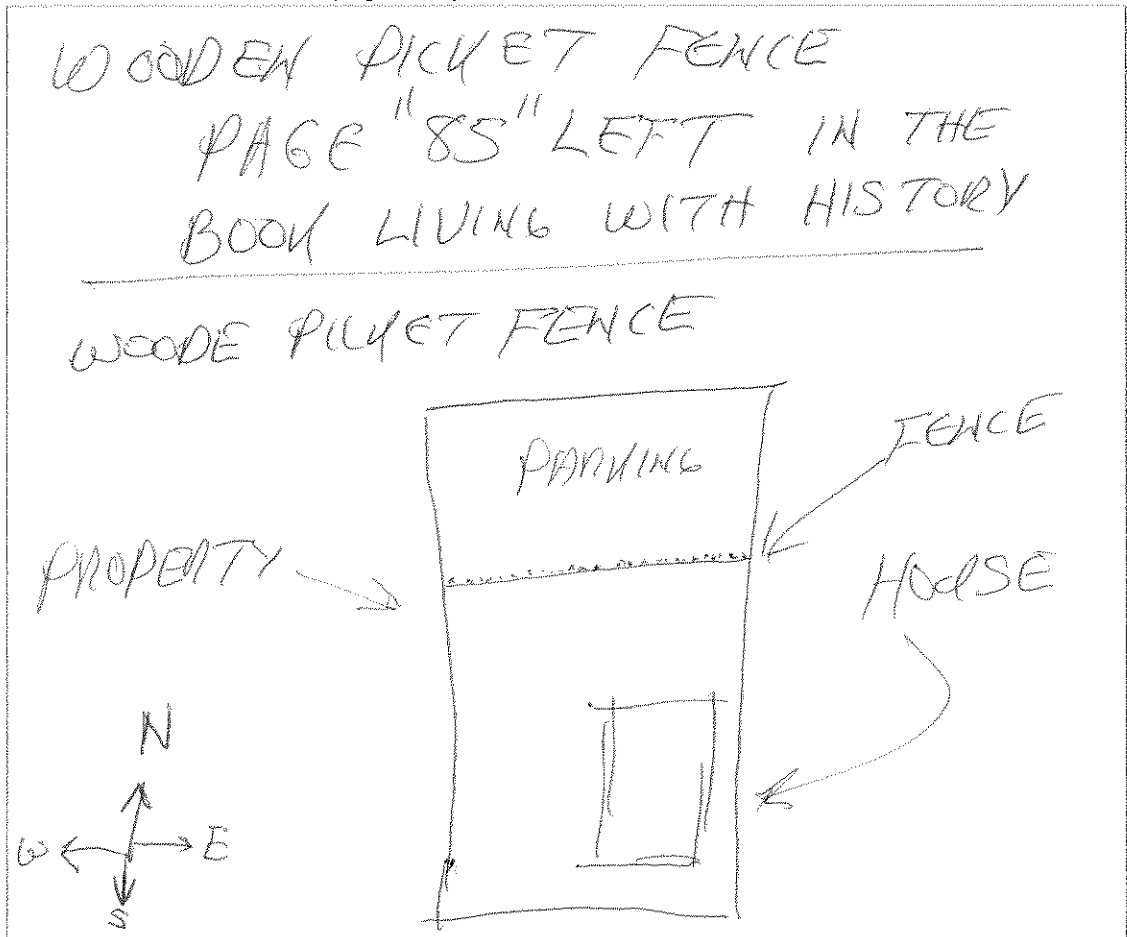 WOODEN PICKET FENCE
PAGE "85" LEFT IN THE
BOOK LIVING WITH HISTORY
WOODE PICKET FENCE
PARKING
FENCE
PROPERTY
HOUSE
N
W E
S